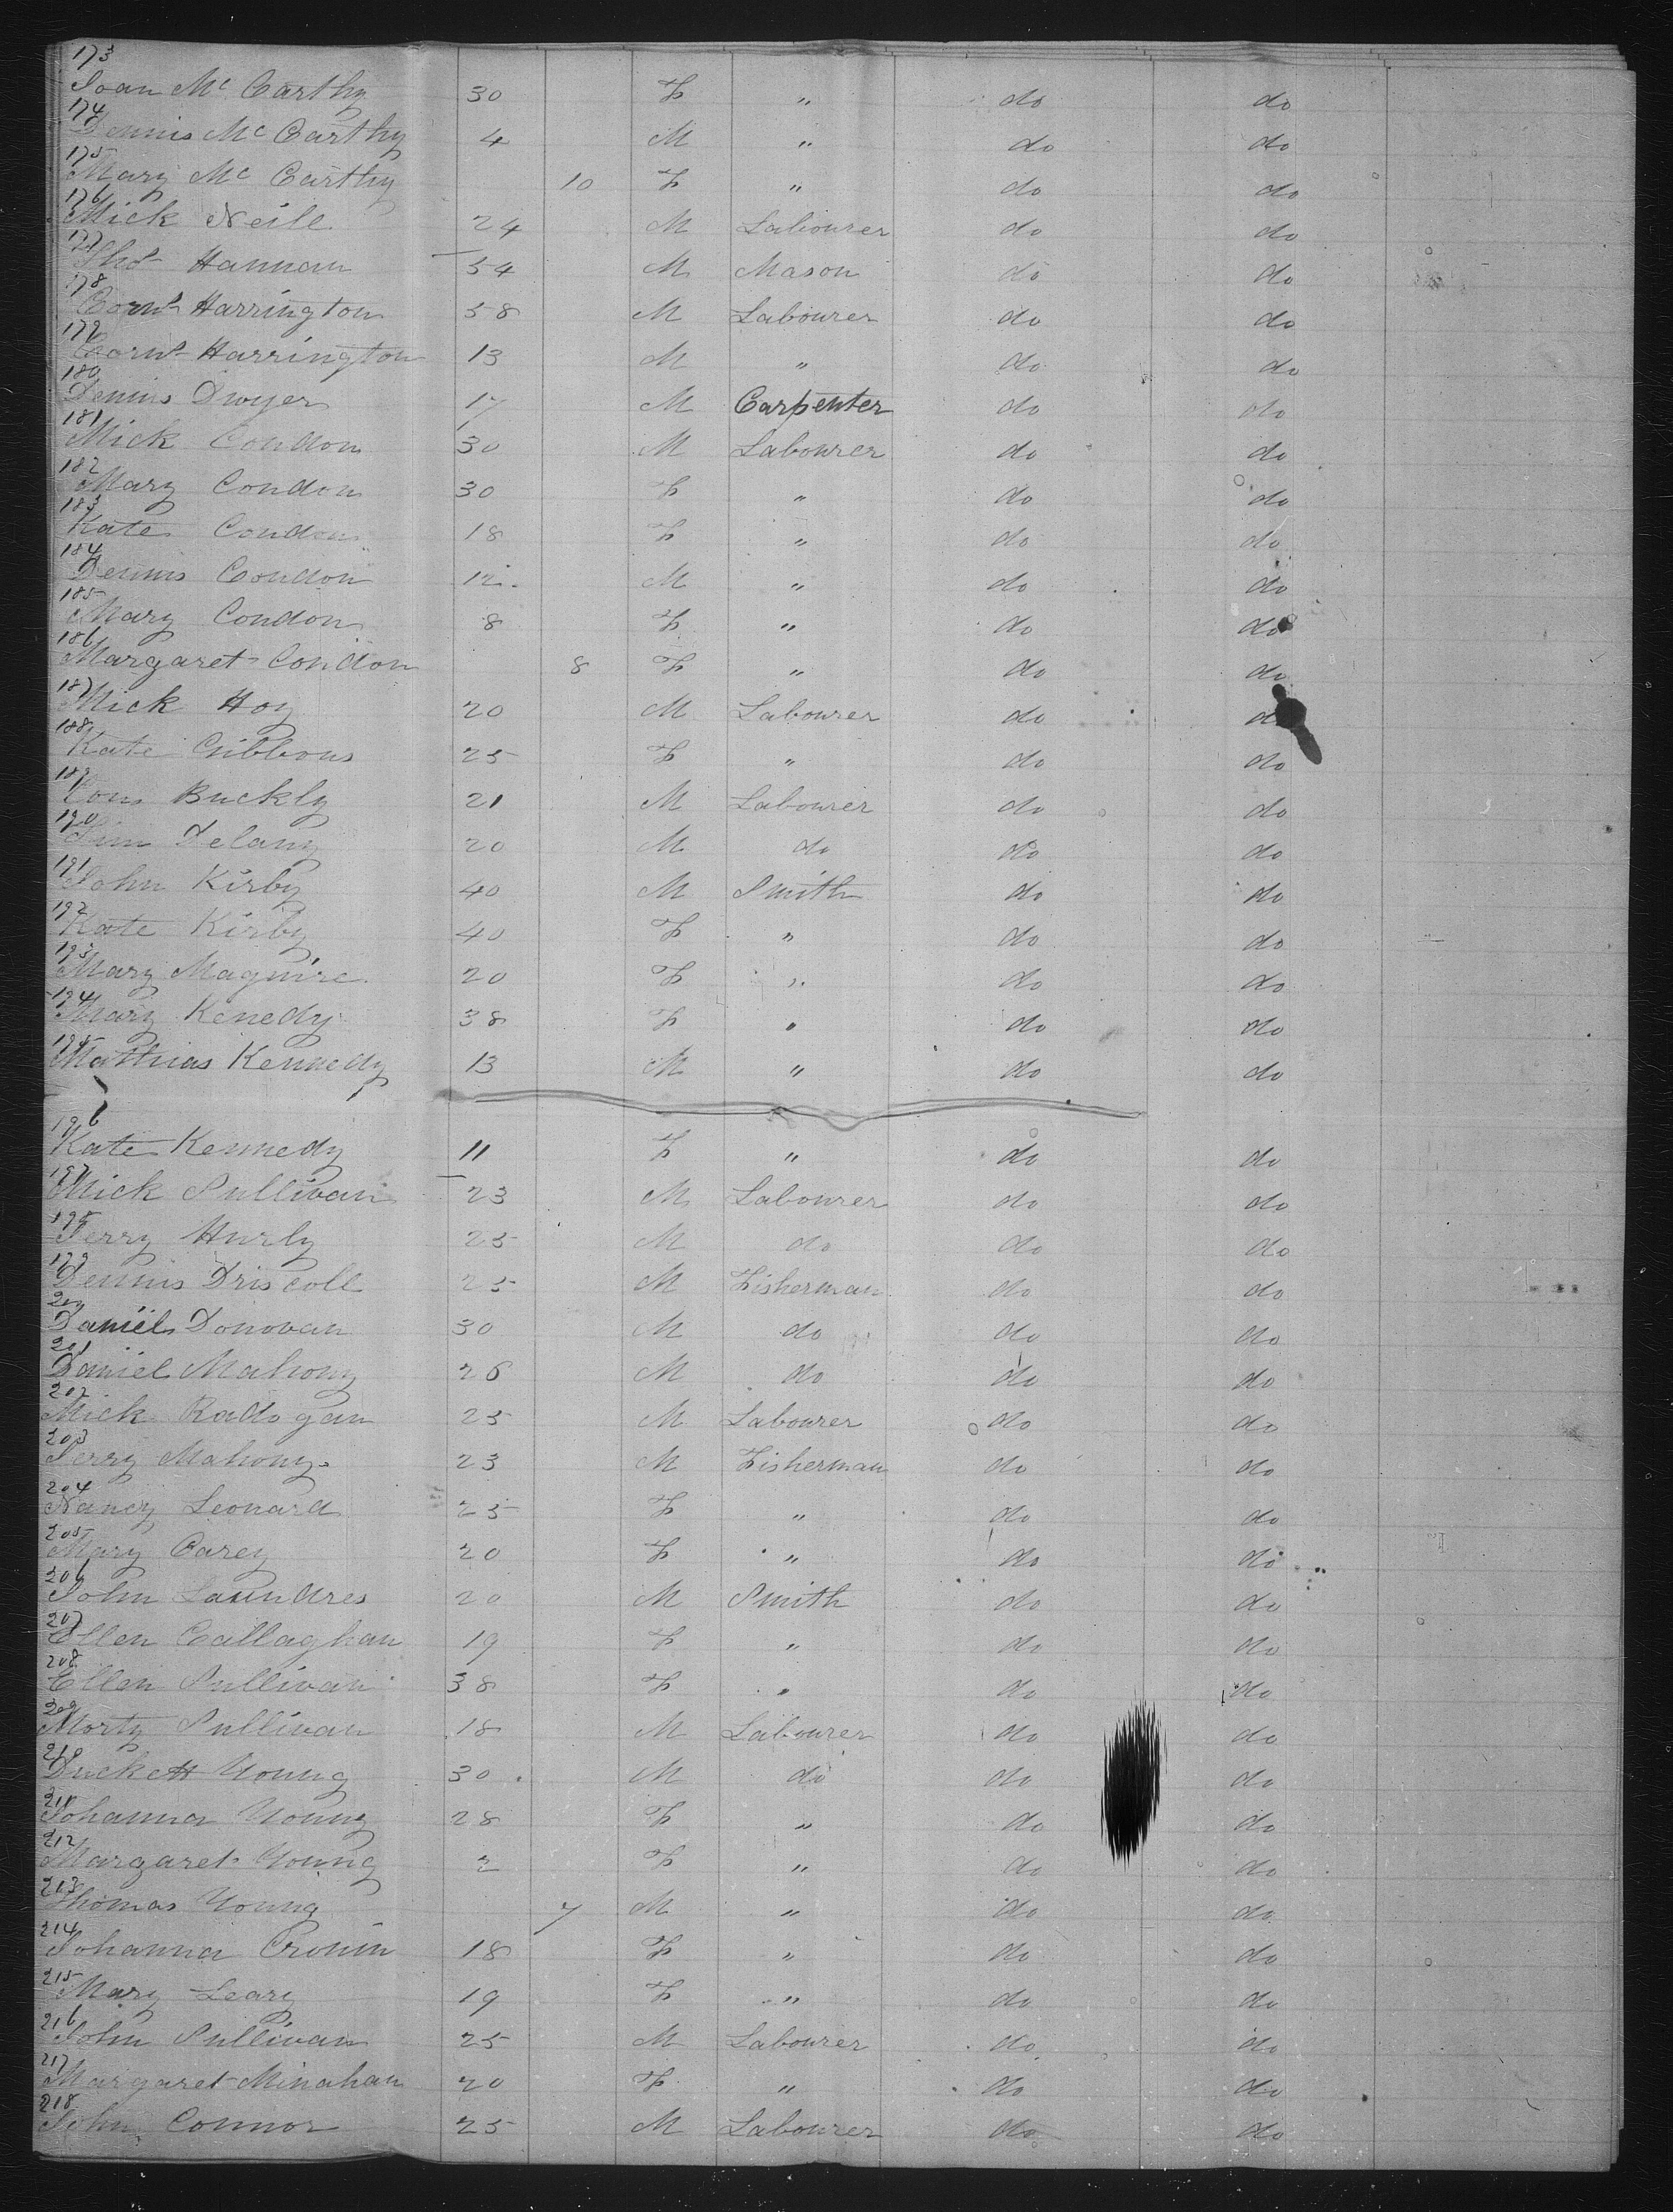 173
Joan Mc Carthy 30 F " do do
174
Dennis Mc Carthy 4 M " do do
175
Mary Mc Carthy 10 F " do do
176
Mick Neill 24 M Labourer do do
177
Thos Hannan 54 M Mason do do
178
Corns Harrington 58 M Labourer do do
179
Corns Harrington 13 M " do do
180
Dennis Dwyer 17 M Carpenter do do
181
Mick Condon 30 M Labourer do do
182
Mary Condon 30 F " do do
183
Kate Condon 18 F " do do
184
Dennis Condon 12 M " do do
185
Mary Condon 8 F " do do
186
Margaret Condon 8 F " do do
187
Mick Hoy 20 M Labourer do do
188
Kate Gibbons 25 F " do do
189
Con Buckly 21 M Labourer do do
190
Tim Delany 20 M do do do
191
John Kirby 40 M Smith do do
192
Kate Kirby 40 F " do do
193
Mary Maguire 20 F " do do
194
Mary Kenedy 38 F " do do
195
Mathias Kennedy 13 M " do do
196
Kate Kennedy 11 F " do do
197
Mick Sullivan 23 M Labourer do do
198
Jerry Hurly 25 M do do do
199
Dennis Driscoll 25 M Fisherman do do
200
Daniel Donovan 30 M do do do
201
Daniel Mahony 26 M do do do
202
Mick Radogan 25 M Labourer do do
203
Jerry Mahony 23 M Fisherman do do
204
Nancy Leonard 25 F " do do
205
Mary Carey 20 F " do do
206
John Saundres 20 M Smith do do
207
Ellen Callaghan 19 F " do do
208
Ellen Sullivan 38 F " do do
209
Morty Sullivan 18 M Labourer do do
210
Duckett Young 30 M do do do
211
Johanna Young 28 F " do do
212
Margaret Young 2 F " do do
213
Thomas Young 7 M " do do
214
Johanna Cronin 18 F " do do
215
Mary Leary 19 F " do do
216
John Sullivan 25 M Labourer do do
217
Margaret Minahan 20 F " do do
218
John Connor 25 M Labourer do do